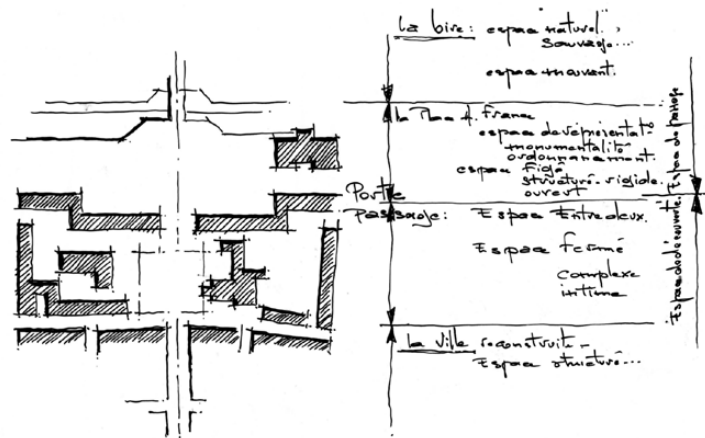 La Loire: espace naturel.
sauvage...
espace mouvant.
La Place de France
espace de représentat°
monumentalité
ordonnancement.
espace figé
structuré - rigide.
ouvert
Porte
Passage: Espace Entre deux.
Espace fermé
complexe
intime
La ville reconstruite -
Espace structuré...
Espace de passage
Espace de découverte.